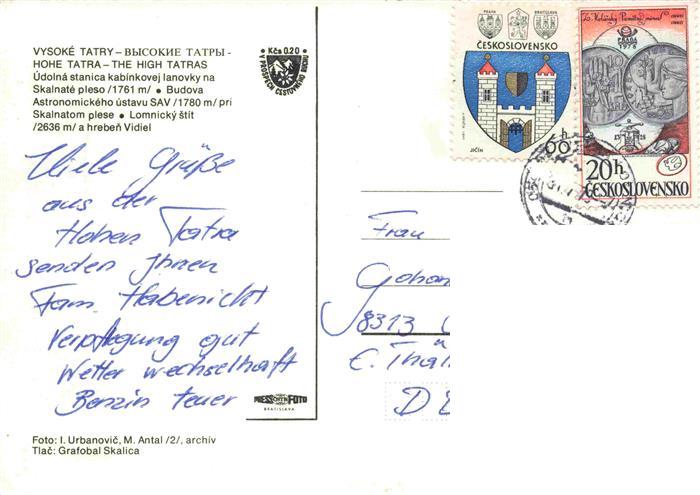 VYSOKÉ TATRY – ВЫСОКИЕ ТАТРЫ -
HOHE TATRA – THE HIGH TATRAS
Údolná stanica kabínkovej lanovky na
Skalnaté pleso /1761 m/ • Budova
Astronomického ústavu SAV /1780 m/ pri
Skalnatom plese • Lomnický štít
/2636 m/ a hrebeň Vidiel
Kčs 0,20
Viele Grüße
aus der
Hohen Tatra
senden Ihnen
Fam. Habenicht
Verpflegung gut
Wetter wechselhaft
Benzin teuer
PRESSFOTO
BRATISLAVA
Foto: I. Urbanovič, M. Antal /2/, archív
Tlač: Grafobal Skalica
PRAHA
BRATISLAVA
ČESKOSLOVENSKO
JIČÍN
60 h
PRAGA
1978
20h
ČESKOSLOVENSKO
Frau
8313
E. Thäl
D